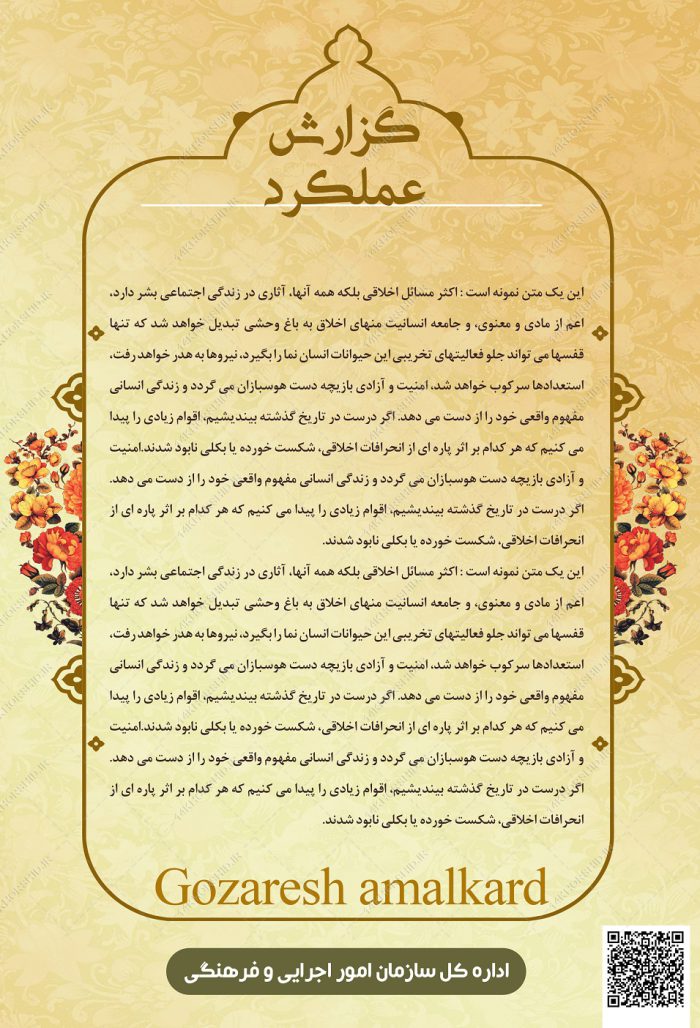 گزارش
عملکرد
این یک متن نمونه است : اکثر مسائل اخلاقی بلکه همه آنها، آثاری در زندگی اجتماعی بشر دارد،
اعم از مادی و معنوی، و جامعه انسانیت منهای اخلاق به باغ وحشی تبدیل خواهد شد که تنها
قفسها می تواند جلو فعالیتهای تخریبی این حیوانات انسان نما را بگیرد، نیروها به هدر خواهد رفت،
استعدادها سرکوب خواهد شد، امنیت و آزادی بازیچه دست هوسبازان می گردد و زندگی انسانی
مفهوم واقعی خود را از دست می دهد. اگر درست در تاریخ گذشته بیندیشیم، اقوام زیادی را پیدا
می کنیم که هر کدام بر اثر پاره ای از انحرافات اخلاقی، شکست خورده یا بکلی نابود شدند.امنیت
و آزادی بازیچه دست هوسبازان می گردد و زندگی انسانی مفهوم واقعی خود را از دست می دهد.
اگر درست در تاریخ گذشته بیندیشیم، اقوام زیادی را پیدا می کنیم که هر کدام بر اثر پاره ای از
انحرافات اخلاقی، شکست خورده یا بکلی نابود شدند.
این یک متن نمونه است : اکثر مسائل اخلاقی بلکه همه آنها، آثاری در زندگی اجتماعی بشر دارد،
اعم از مادی و معنوی، و جامعه انسانیت منهای اخلاق به باغ وحشی تبدیل خواهد شد که تنها
قفسها می تواند جلو فعالیتهای تخریبی این حیوانات انسان نما را بگیرد، نیروها به هدر خواهد رفت،
استعدادها سرکوب خواهد شد، امنیت و آزادی بازیچه دست هوسبازان می گردد و زندگی انسانی
مفهوم واقعی خود را از دست می دهد. اگر درست در تاریخ گذشته بیندیشیم، اقوام زیادی را پیدا
می کنیم که هر کدام بر اثر پاره ای از انحرافات اخلاقی، شکست خورده یا بکلی نابود شدند.امنیت
و آزادی بازیچه دست هوسبازان می گردد و زندگی انسانی مفهوم واقعی خود را از دست می دهد.
اگر درست در تاریخ گذشته بیندیشیم، اقوام زیادی را پیدا می کنیم که هر کدام بر اثر پاره ای از
انحرافات اخلاقی، شکست خورده یا بکلی نابود شدند.
Gozaresh amalkard
اداره کل سازمان امور اجرایی و فرهنگی